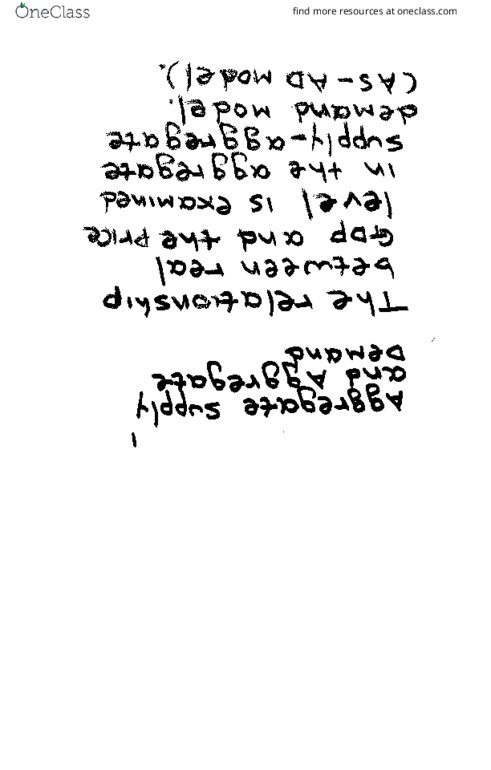 OneClass
find more resources at oneclass.com
Aggregate supply
and Aggregate
Demand
The relationship
between real
GDP and the price
level is examined
in the aggregate
supply-aggregate
demand model.
(AS-AD model).